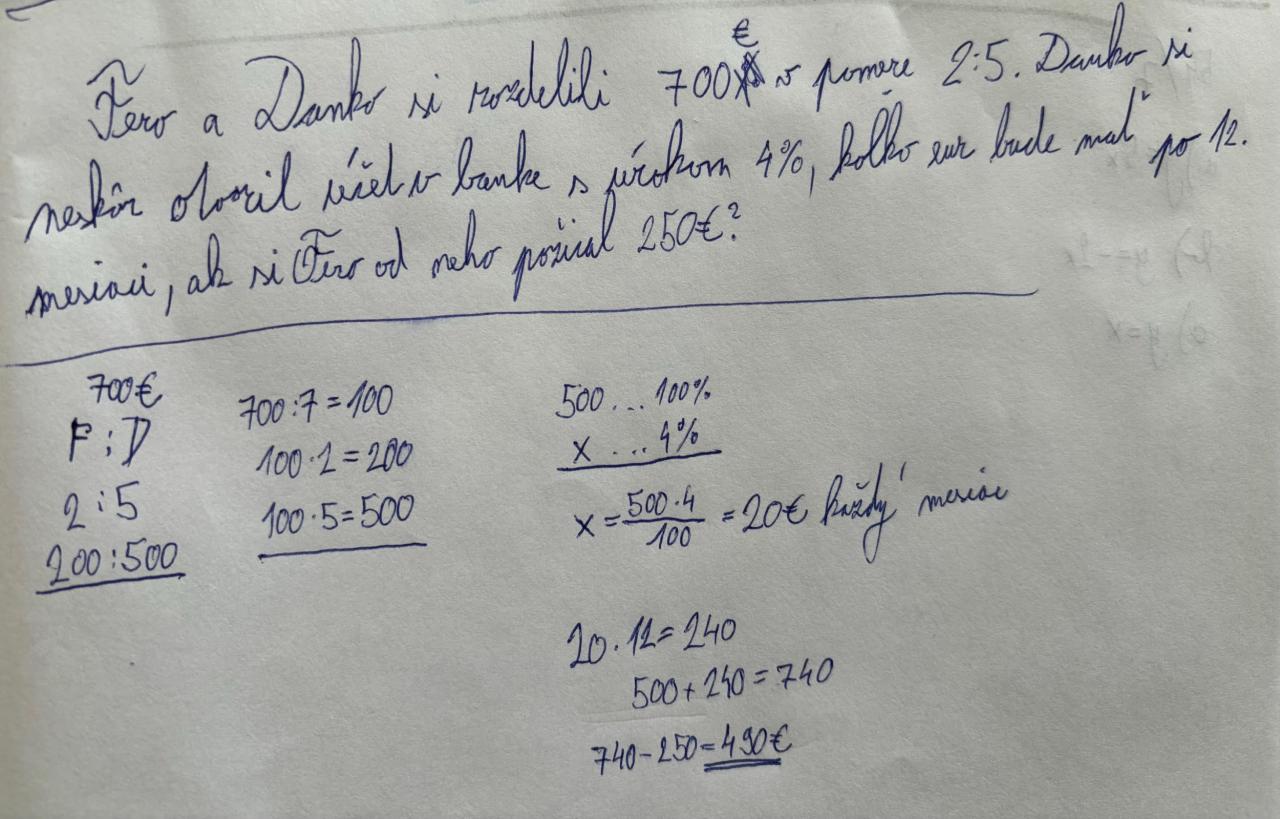 Fero a Danko si rozdelili 700€ v pomere 2:5. Danko si
neskôr otvoril účet v banke s úrokom 4%, koľko eur bude mať po 12.
mesiaci, ak si Fero od neho požical 250€?
700€
F:D
2:5
200:500
700:7=100
100·2=200
100·5=500
500...100%
x ...4%
x=500·4/100 =20€ každý mesiac
20·12=240
500+240=740
740-250=490€